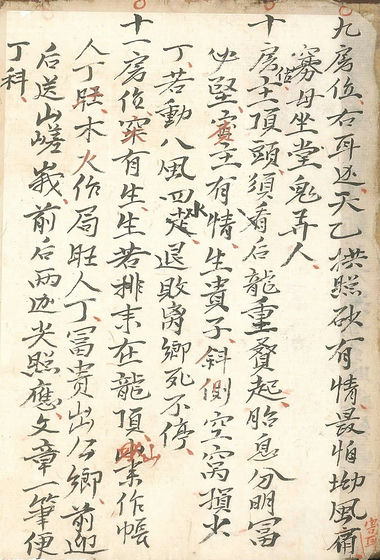 九房位右耳边天乙拱照砂有情最怕坳风痟
寡母坐堂鬼弄人
十房借土頂頭須看后龍重叠起胎息分明冨
必堅賔主有情生貴子斜側空窝損少
丁若動八風四水走退敗离鄉死不停
十一房位穼有生生若排来在龍頂案山作帳
人丁旺木火作局旺人丁冨貴出公鄉前迎
后送山嵯峩前后两边尖照應文章一筆便
丁科